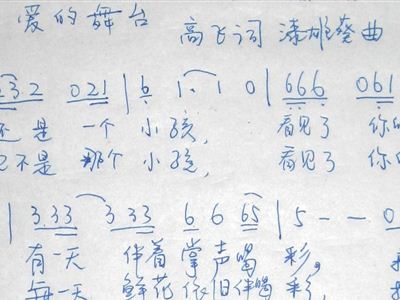 爱的舞台
高飞词 潘雄葵曲
232 021 | 6 1· 1 0 | 666 061
还是 一个 小孩, 看见了 你的
已不是 那个 小孩, 看见了 你的
| 3.33 3 33 6 6 65 | 5 - - 0
有一天 伴着掌声喝彩,
每一天 鲜花依旧伴喝彩,